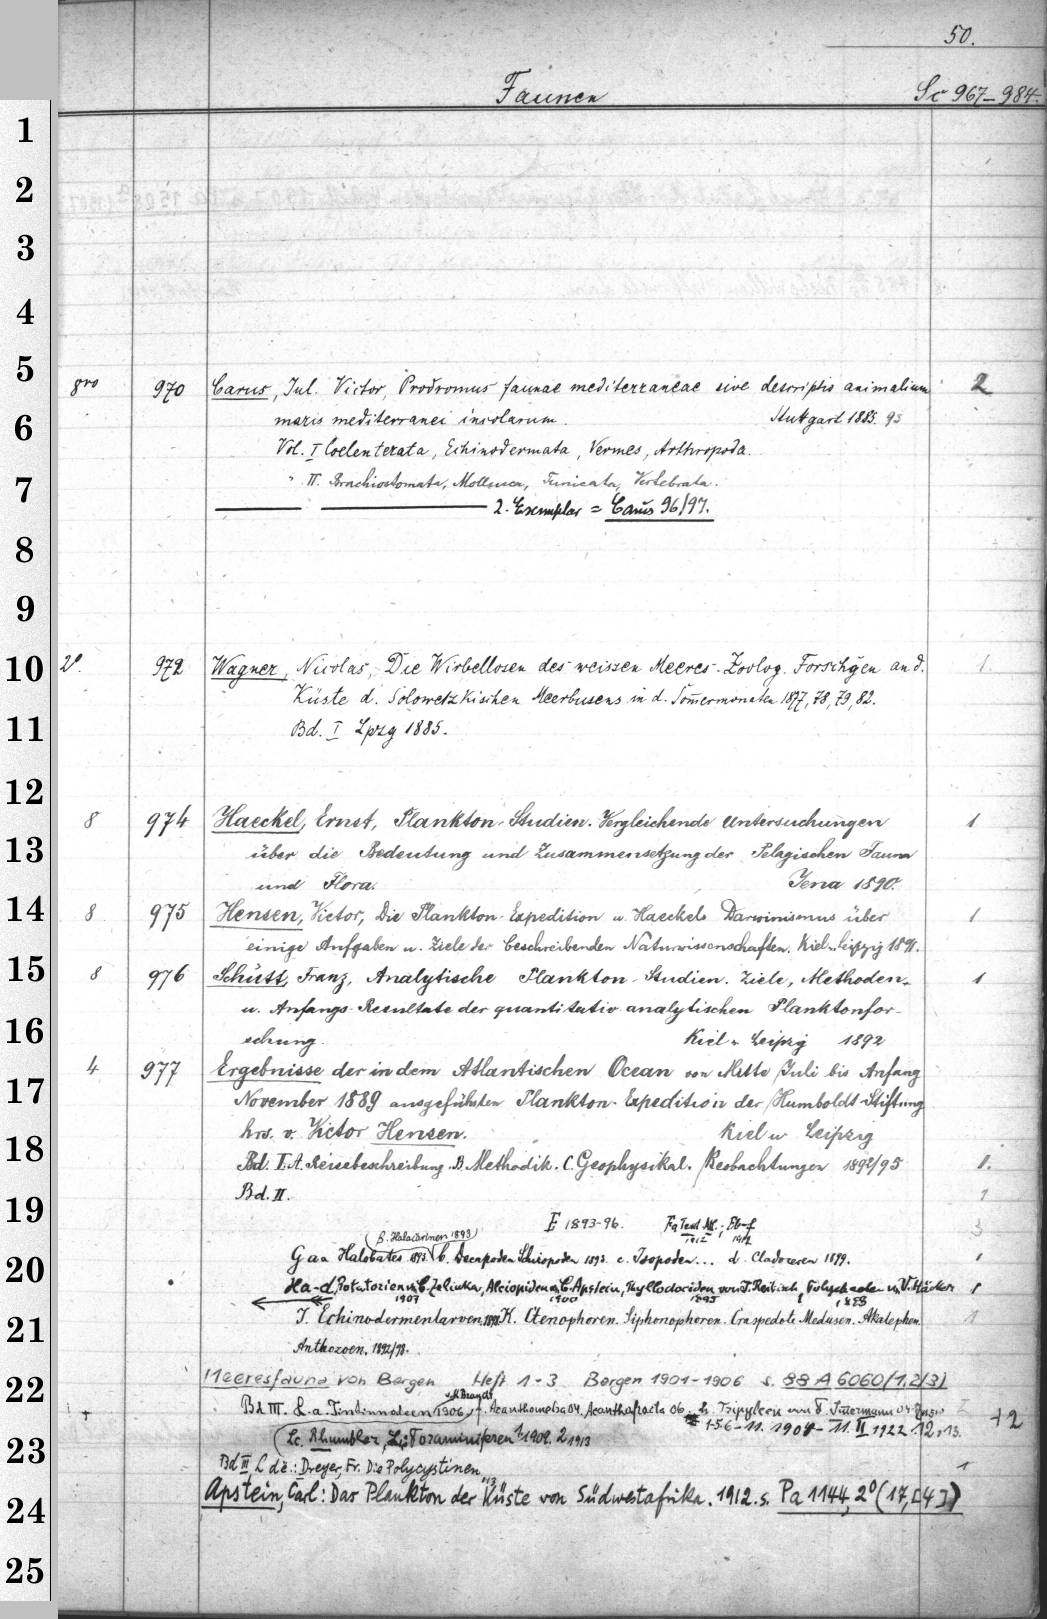 50.
Faunen
Sc 967-984.
8vo 970 Carus, Jul. Victor, Prodromus faunae mediterraneae sive descriptio animalium 2
maris mediterranei incolarum. Stuttgart 1885. 93
Vol. I Coelenterata, Echinodermata, Vermes, Arthropoda.
" II. Brachiostomata, Mollusca, Tunicata, Vertebrata.
2. Exemplar = Carus 96/97.
2o. 972 Wagner, Nicolas, Die Wirbellosen des weissen Meeres. Zoolog. Forschgen an d. 1.
Küste d. Solowetzkischen Meerbusens in d. Som̄ermonaten 1877, 78, 79, 82.
Bd. I Lpzg 1885.
8 974 Haeckel, Ernst, Plankton-Studien. Vergleichende Untersuchungen 1
über die Bedeutung und Zusammensetzung der Pelagischen Fauna
und Flora. Jena 1890.
8 975 Hensen, Victor, Die Plankton-Expedition u. Haeckels Darwinismus über 1
einige Aufgaben u. Ziele der beschreibenden Naturwissenschaften. Kiel u. Leipzig 1891.
8 976 Schütt, Franz, Analytische Plankton-Studien. Ziele, Methoden 1
u. Anfangs-Resultate der quantitativ analytischen Planktonfor-
schung. Kiel u. Leipzig 1892
4 977 Ergebnisse der in dem Atlantischen Ocean von Mitte Juli bis Anfang
November 1889 ausgeführten Plankton-Expedition der Humboldt-Stiftung
hrs. v. Victor Hensen. Kiel u Leipzig
Bd. I. A. Reisebeschreibung. B. Methodik. C. Geophysikal. Beobachtungen 1892/95 1.
Bd. II. 1
E 1893-96. Fa Text Atl.; Fb-f 3
1912 1912
β. Halacarinen 1893
G a α Halobates 1893 b. Decapoden Schizopoden 1893. c. Isopoden... d. Cladoceren 1899. 1
Ha-d, Rotatorien v. C. Zelinka, Alciopiden v. C. Apstein, Phyllodociden von J. Reibisch, Polychaeten v. V. Häcker 1
1907 1900 1895 1898
J. Echinodermenlarven, 1898 K. Ctenophoren. Siphonophoren. Craspedote Medusen. Akalephen. 1
Anthozoen. 1892/98.
Meeresfauna von Bergen Heft 1-3 Bergen 1901-1906 s. 88 A 6060 (1, 2/3)
v. K. Brandt
Bd III. L. a Tintinnodeen 1906, f. Acanthometra 04, Acanthafracta 06. h. Tripyleen +2
Lc. Rhumbler, L.: Foraminiferen 1. 1909. 2 1913
Bd III L d ε.: Dreyer, Fr. Die Polycystinen 1
13
Apstein, Carl: Das Plankton der Küste von Südwestafrika. 1912. s. Pa 1144, 2o (17, [4])
1
2
3
4
5
6
7
8
9
10
11
12
13
14
15
16
17
18
19
20
21
22
23
24
25